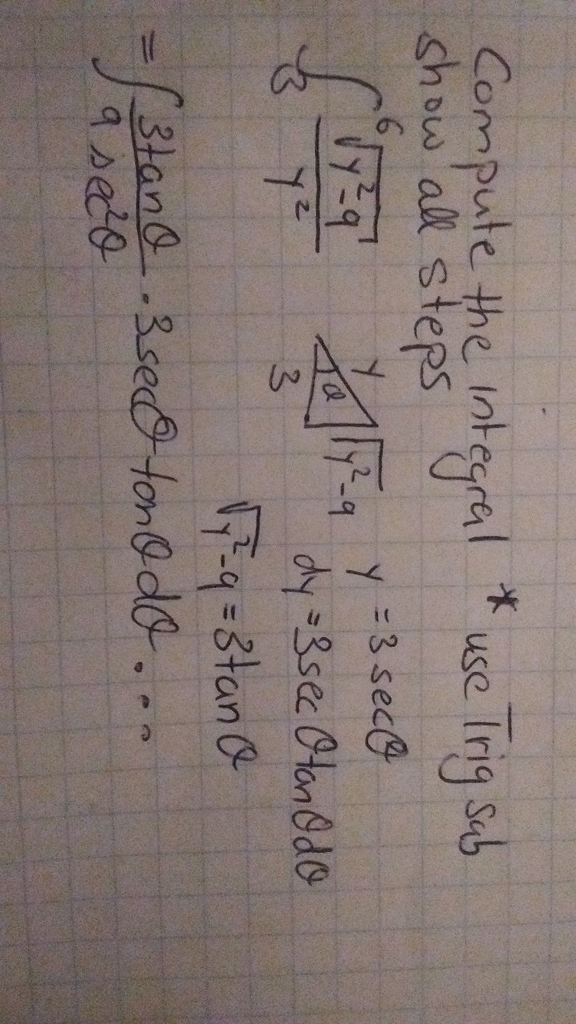 Compute the Integral * use Trig sub
show all steps
∫₃⁶ √(y²-9) / y²
y θ √(y²-9) 3
y = 3 secθ
dy = 3secθtanθdθ
√(y²-9) = 3tanθ
= ∫ 3tanθ / 9 sec²θ · 3secθ tanθdθ ...